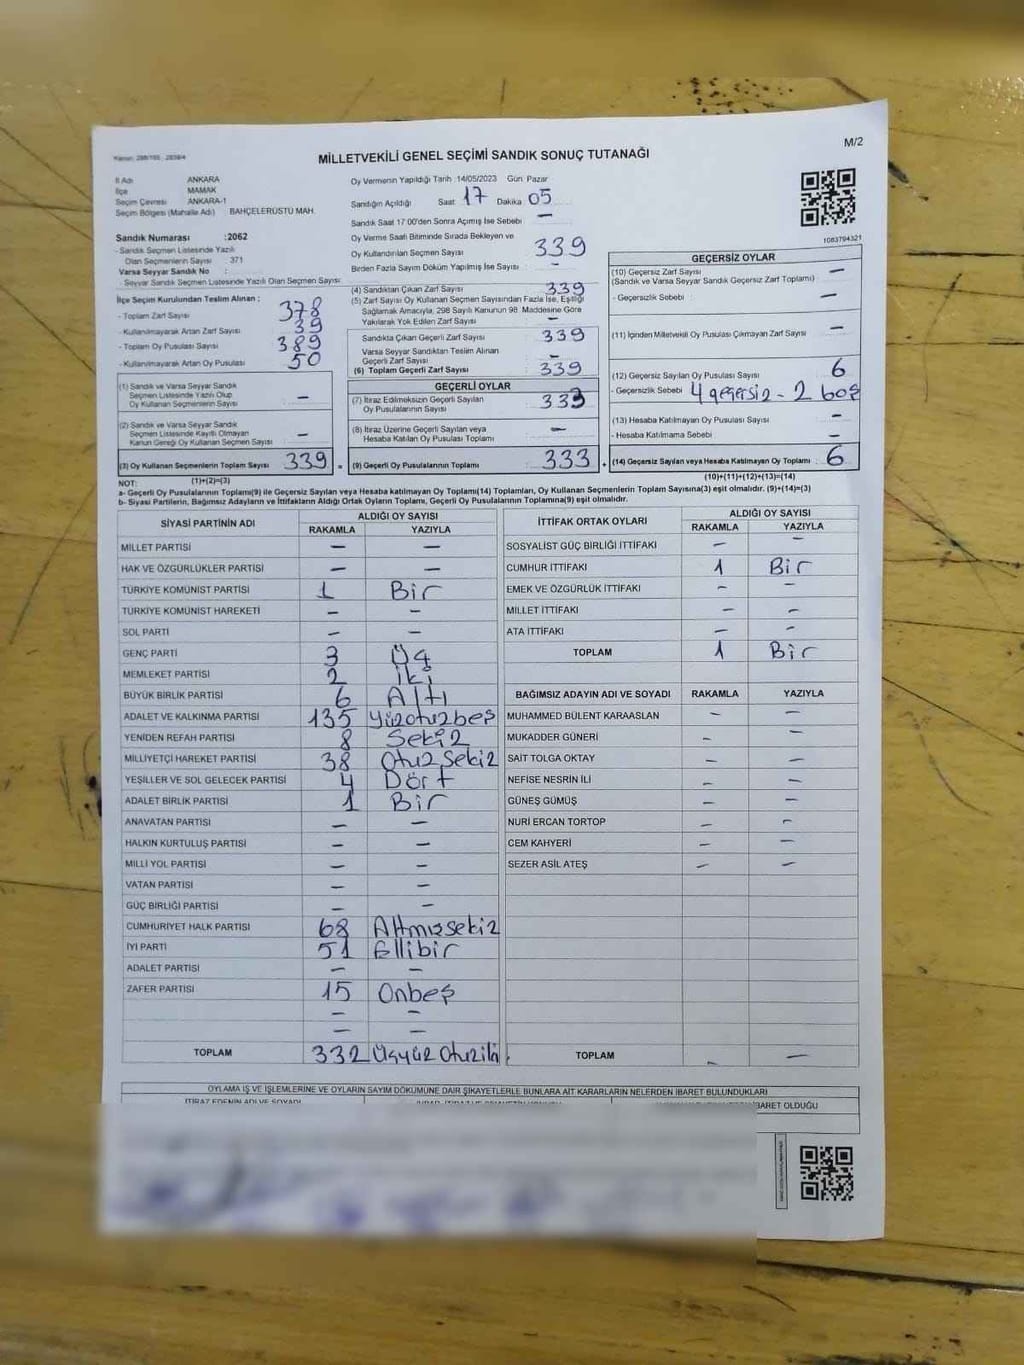 M/2
MİLLETVEKİLİ GENEL SEÇİMİ SANDIK SONUÇ TUTANAĞI
İl Adı ANKARA
İlçe MAMAK
Seçim Çevresi ANKARA-1
Seçim Bölgesi (Mahalle Adı) BAHÇELERÜSTÜ MAH.
Sandık Numarası :2062
- Sandık Seçmen Listesinde Yazılı
Olan Seçmenlerin Sayısı : 371
Varsa Seyyar Sandık No :
- Seyyar Sandık Seçmen Listesinde Yazılı Olan Seçmen Sayısı:
İlçe Seçim Kurulundan Teslim Alınan :
- Toplam Zarf Sayısı 378
- Kullanılmayarak Artan Zarf Sayısı 39
- Toplam Oy Pusulası Sayısı 389
- Kullanılmayarak Artan Oy Pusulası 50
(1) Sandık ve Varsa Seyyar Sandık
Seçmen Listesinde Yazılı Olup
Oy Kullanan Seçmenlerin Sayısı –
(2) Sandık ve Varsa Seyyar Sandık
Seçmen Listesinde Kayıtlı Olmayan
Kanun Gereği Oy Kullanan Seçmen Sayısı –
(3) Oy Kullanan Seçmenlerin Toplam Sayısı 339 =
(1)+(2)=(3)
Oy Vermenin Yapıldığı Tarih :14/05/2023 Gün Pazar
Sandığın Açıldığı Saat 17 Dakika 05
Sandık Saat 17:00'den Sonra Açımış İse Sebebi –
Oy Verme Saati Bitiminde Sırada Bekleyen ve
Oy Kullandırılan Seçmen Sayısı 339
Birden Fazla Sayım Döküm Yapılmış İse Sayısı –
(4) Sandıktan Çıkan Zarf Sayısı 339
(5) Zarf Sayısı Oy Kullanan Seçmen Sayısından Fazla İse, Eşitliği
Sağlamak Amacıyla, 298 Sayılı Kanunun 98. Maddesine Göre
Yakılarak Yok Edilen Zarf Sayısı –
Sandıkta Çıkan Geçerli Zarf Sayısı 339
Varsa Seyyar Sandıktan Teslim Alınan
Geçerli Zarf Sayısı –
(6) Toplam Geçerli Zarf Sayısı 339
GEÇERLİ OYLAR
(7) İtiraz Edilmeksizin Geçerli Sayılan
Oy Pusulalarının Sayısı 333
(8) İtiraz Üzerine Geçerli Sayılan veya
Hesaba Katılan Oy Pusulası Toplamı –
(9) Geçerli Oy Pusulalarının Toplamı 333 +
1083794321
GEÇERSİZ OYLAR
(10) Geçersiz Zarf Sayısı –
(Sandık ve Varsa Seyyar Sandık Geçersiz Zarf Toplamı)
- Geçersizlik Sebebi : –
(11) İçinden Milletvekili Oy Pusulası Çıkmayan Zarf Sayısı –
(12) Geçersiz Sayılan Oy Pusulası Sayısı 6
- Geçersizlik Sebebi 4 geçersiz - 2 boş
(13) Hesaba Katılmayan Oy Pusulası Sayısı –
- Hesaba Katılmama Sebebi –
(14) Geçersiz Sayılan veya Hesaba Katılmayan Oy Toplamı : 6
(10)+(11)+(12)+(13)=(14)
NOT:
a- Geçerli Oy Pusulalarının Toplamı(9) ile Geçersiz Sayılan veya Hesaba katılmayan Oy Toplamı(14) Toplamları, Oy Kullanan Seçmenlerin Toplam Sayısına(3) eşit olmalıdır. (9)+(14)=(3)
b- Siyasi Partilerin, Bağımsız Adayların ve İttifakların Aldığı Ortak Oyların Toplamı, Geçerli Oy Pusulalarının Toplamına(9) eşit olmalıdır.
SİYASİ PARTİNİN ADI ALDIĞI OY SAYISI
RAKAMLA YAZIYLA
MİLLET PARTİSİ – –
HAK VE ÖZGÜRLÜKLER PARTİSİ – –
TÜRKİYE KOMÜNİST PARTİSİ 1 Bir
TÜRKİYE KOMÜNİST HAREKETİ – –
SOL PARTİ – –
GENÇ PARTİ 3 Üç
MEMLEKET PARTİSİ 2 İki
BÜYÜK BİRLİK PARTİSİ 6 Altı
ADALET VE KALKINMA PARTİSİ 135 Yüzotuzbeş
YENİDEN REFAH PARTİSİ 8 Sekiz
MİLLİYETÇİ HAREKET PARTİSİ 38 Otuz Sekiz
YEŞİLLER VE SOL GELECEK PARTİSİ 4 Dört
ADALET BİRLİK PARTİSİ 1 Bir
ANAVATAN PARTİSİ – –
HALKIN KURTULUŞ PARTİSİ – –
MİLLİ YOL PARTİSİ – –
VATAN PARTİSİ – –
GÜÇ BİRLİĞİ PARTİSİ – –
CUMHURİYET HALK PARTİSİ 68 Altmışsekiz
İYİ PARTİ 51 Ellibir
ADALET PARTİSİ – –
ZAFER PARTİSİ 15 Onbeş
– –
– –
TOPLAM 332 Üçyüz Otuziki
İTTİFAK ORTAK OYLARI ALDIĞI OY SAYISI
RAKAMLA YAZIYLA
SOSYALİST GÜÇ BİRLİĞİ İTTİFAKI – –
CUMHUR İTTİFAKI 1 Bir
EMEK VE ÖZGÜRLÜK İTTİFAKI – –
MİLLET İTTİFAKI – –
ATA İTTİFAKI – –
TOPLAM 1 Bir
BAĞIMSIZ ADAYIN ADI VE SOYADI RAKAMLA YAZIYLA
MUHAMMED BÜLENT KARAASLAN – –
MUKADDER GÜNERİ – –
SAİT TOLGA OKTAY – –
NEFİSE NESRİN İLİ – –
GÜNEŞ GÜMÜŞ – –
NURİ ERCAN TORTOP – –
CEM KAHYERİ – –
SEZER ASİL ATEŞ – –
TOPLAM – –
OYLAMA İŞ VE İŞLEMLERİNE VE OYLARIN SAYIM DÖKÜMÜNE DAİR ŞİKAYETLERLE BUNLARA AİT KARARLARIN NELERDEN İBARET BULUNDUKLARI
İTİRAZ EDENİN ADI VE SOYADI
İBARET OLDUĞU